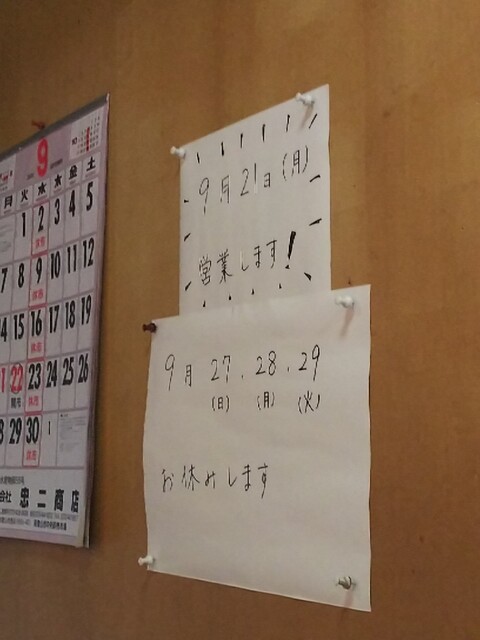 9月21日(月)
営業します!
9月 27.28.29
(日) (月) (火)
お休みします
9
月 火 水 木 金 土
1 2 3 4 5
7 8 9 10 11 12
14 15 16 17 18 19
22 23 24 25 26
28 29 30 1
忠二商店